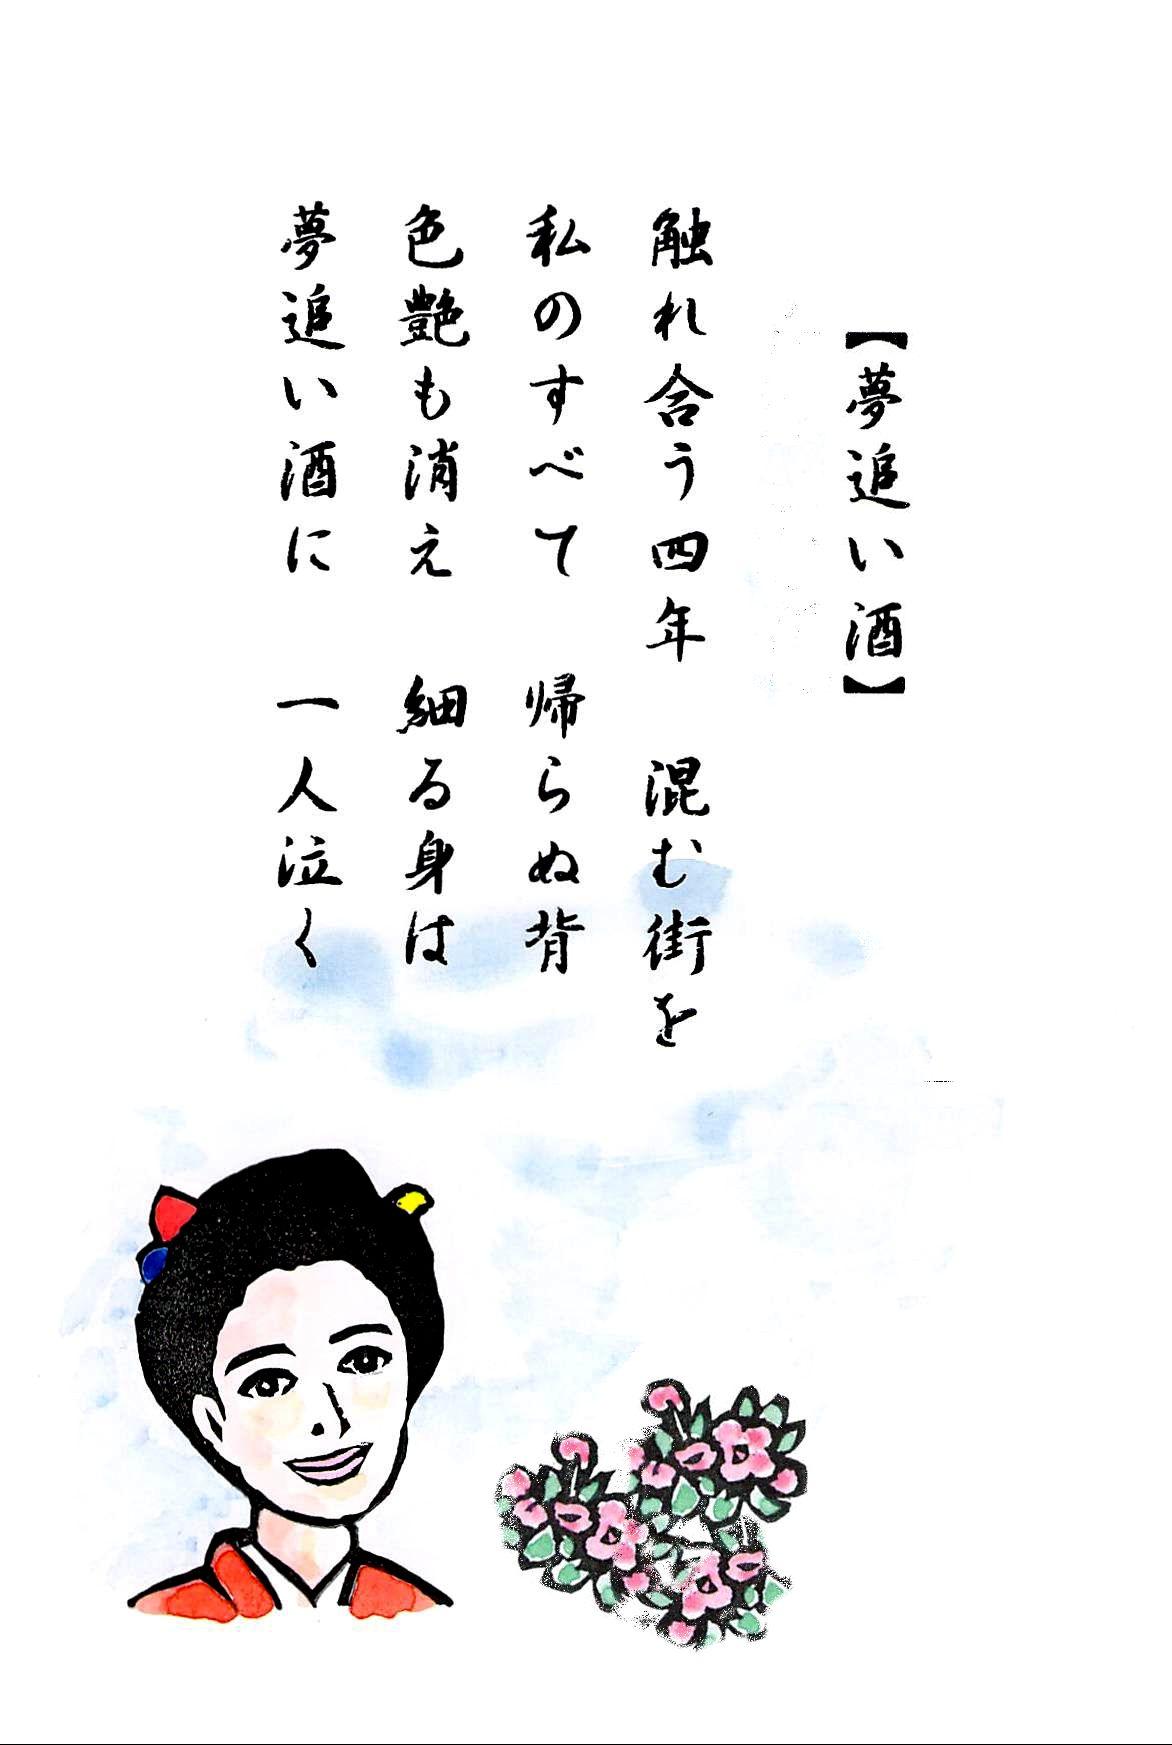 【夢追い酒】
触れ合う四年　混む街を
私のすべて　帰らぬ背
色艶も消え　細る身は
夢追い酒に　一人泣く